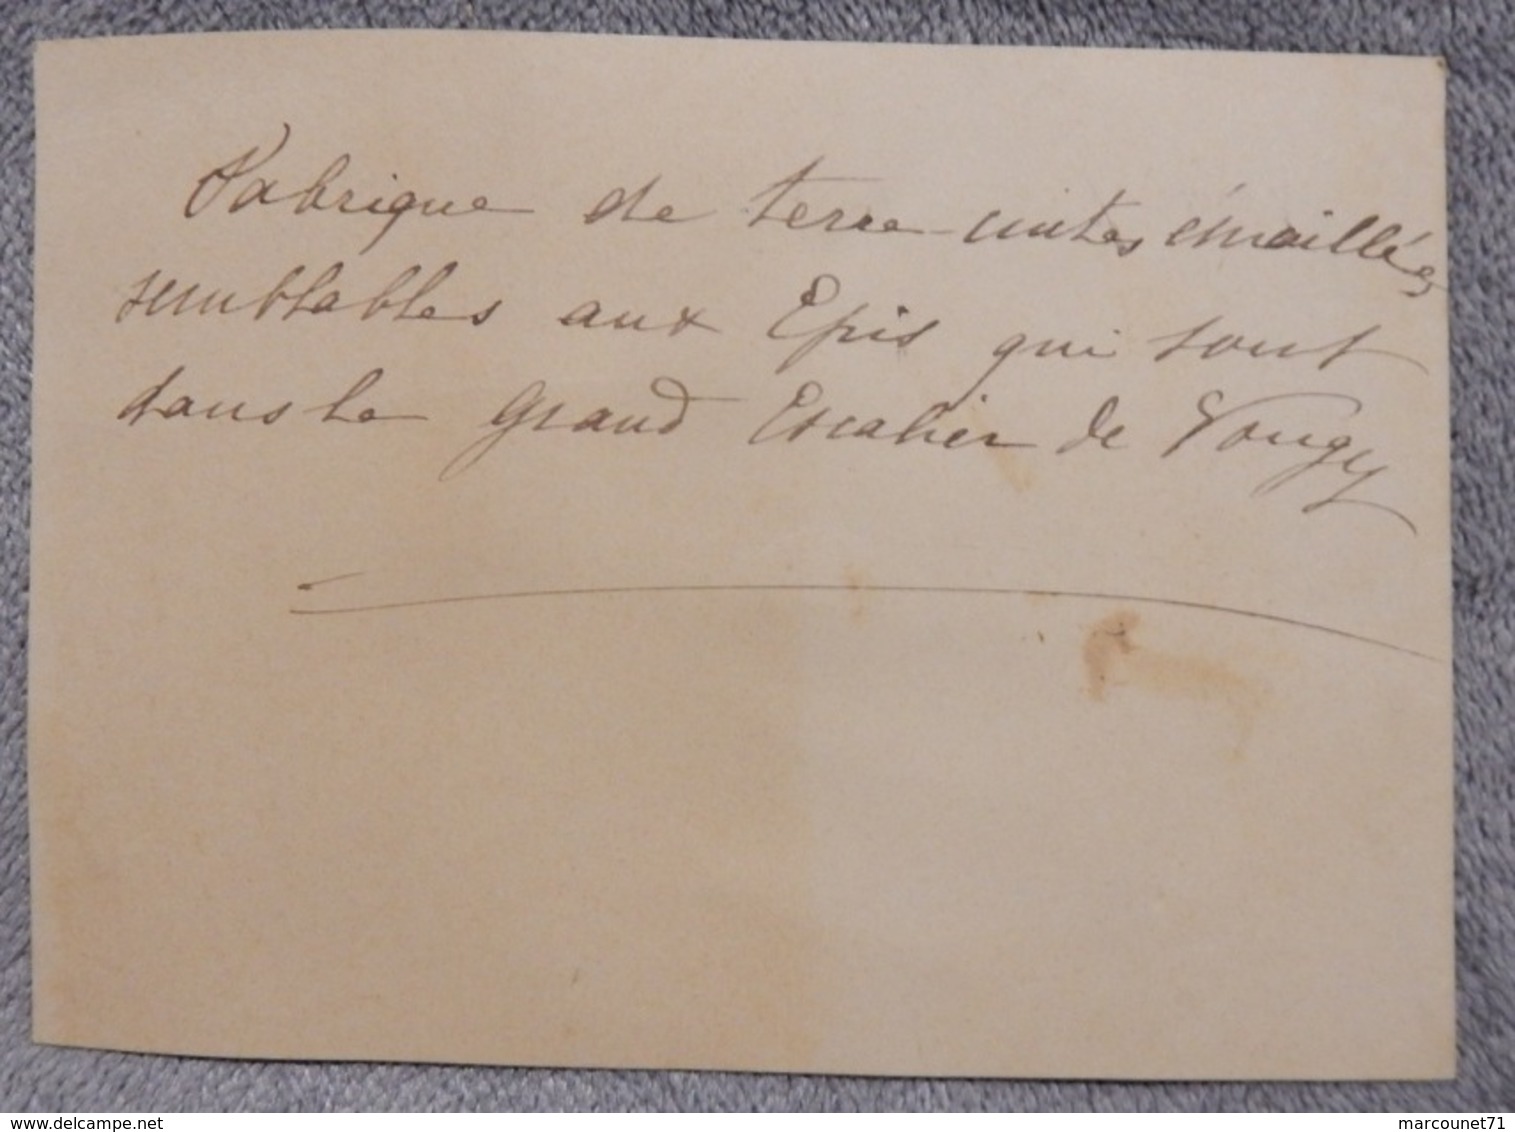 Fabrique de terre-cuites émaillées
semblables aux Epis qui sont
dans le grand Escalier de Vougy
delcampe.net
marcounet71